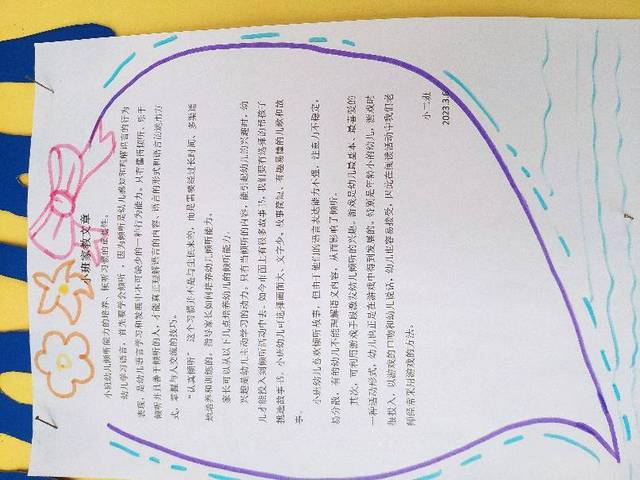 小班家教文章
小班幼儿倾听能力的培养、倾听习惯的重要性。
幼儿学习语言，首先要学会倾听，因为倾听是幼儿感知和理解语言的行为
表现，是幼儿语言学习和发展中不可缺少的一种行为能力。只有懂得倾听、乐于
倾听并且善于倾听的人，才能真正理解语言的内容、语言的形式和语言运用的方
式，掌握与人交流的技巧。
“认真倾听”这个习惯并不是与生俱来的，而是需要经过长时间、多渠道
地培养和训练的。指导家长如何培养幼儿倾听能力。
家长可以从以下几点培养幼儿的倾听能力。
兴趣是幼儿主动学习的动力。只有当倾听的内容，能引起幼儿的兴趣时，幼
儿才能投入到倾听活动中去。如今市面上有很多故事书，我们要有选择的帮孩子
挑选故事书，小班幼儿可选择画面大、文字少、故事简短、有趣易懂的儿歌和故
事。
小班幼儿喜欢倾听故事，但由于他们的语言表达能力不强，注意力不稳定，
易分散，有的幼儿不能理解语义内容，从而影响了倾听。
其次，可利用游戏手段激发幼儿倾听的兴趣。游戏是幼儿最基本、最喜爱的
一种活动形式，幼儿也正是在游戏中得到发展的。特别是年龄小的幼儿，游戏时
很投入，以游戏的口吻和幼儿说话，幼儿也容易接受，因此在阅读活动中我们老
师经常采用游戏的方法。
小二班
2023.3.6